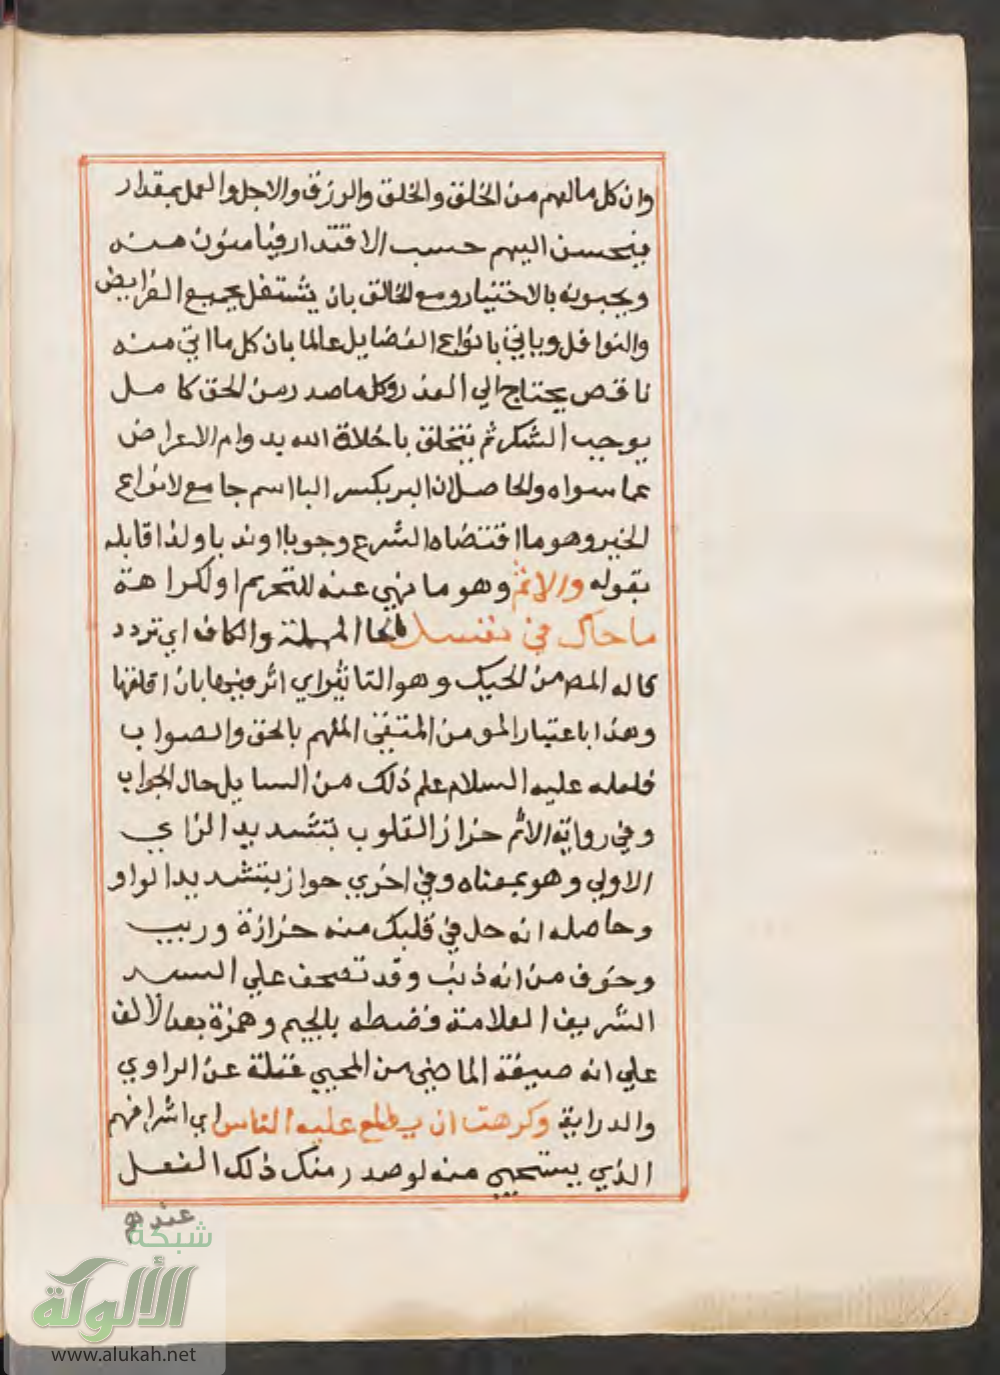 وان كل مالهم من الخلق والخلق والرزق والاجل والعمل بمقدار
فيحسن اليهم حسب الاقتدار فيامنون منه
ويحبونه بالاختيار ومع الخالق بان يشتغل بجميع الفرايض
والنوافل وياتي بانواع الفضايل عالما بان كل ما اتي منه
ناقص يحتاج الي العذر وكل ما صدر من الحق كامل
يوجب الشكر ثم يتخلق باخلاق الله بدوام الاعراض
عما سواه والحاصل ان البر بكسر البا اسم جامع لانواع
الخير وهو ما اقتضاه الشرع وجوبا او ندبا ولذا قابله
بقوله والاثم وهو ما نهي عنه للتحريم او لكراهة
ما حاك في نفسك بالحا المهملة والكاف اي تردد
قاله المص من الحيك وهو التاثير اي اثر فيها بان اقلقها
وهذا باعتبار المومن المتقي الملهم بالحق والصواب
فلعله عليه السلام علم ذلك من السايل حال الجواب
وفي رواية الاثم حزاز القلوب بتشديد الزاي
الاولي وهو بمعناه وفي اخري حواز بتشديد الواو
وحاصله انه حل في قلبك منه حزازة وريب
وخوف من انه ذنب وقد تصحف علي السيد
الشريف العلامة فضبطه بالجيم وهمزة بعد الالف
علي انه صيغة الماضي من المجيي غفلة عن الراوي
والدراية وكرهت ان يطلع عليه الناس اي اشرافهم
الذي يستحيي منه لو صدر منك ذلك الفعل
عندهم
شبكة
الألوكة
www.alukah.net